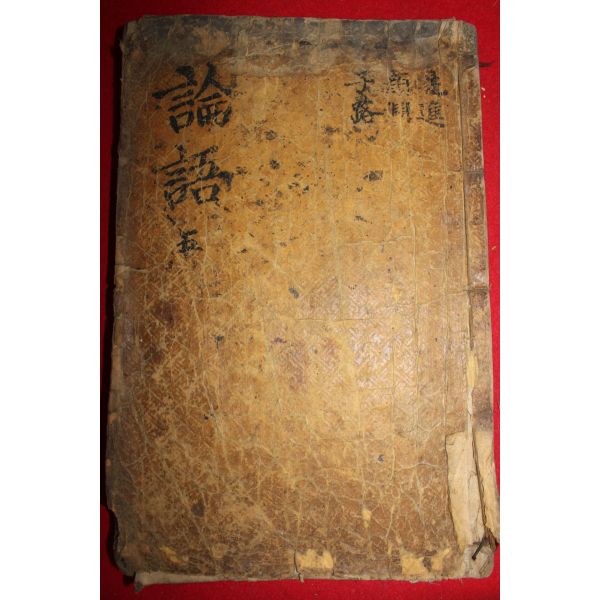 先進
顔淵
子路
論語 五